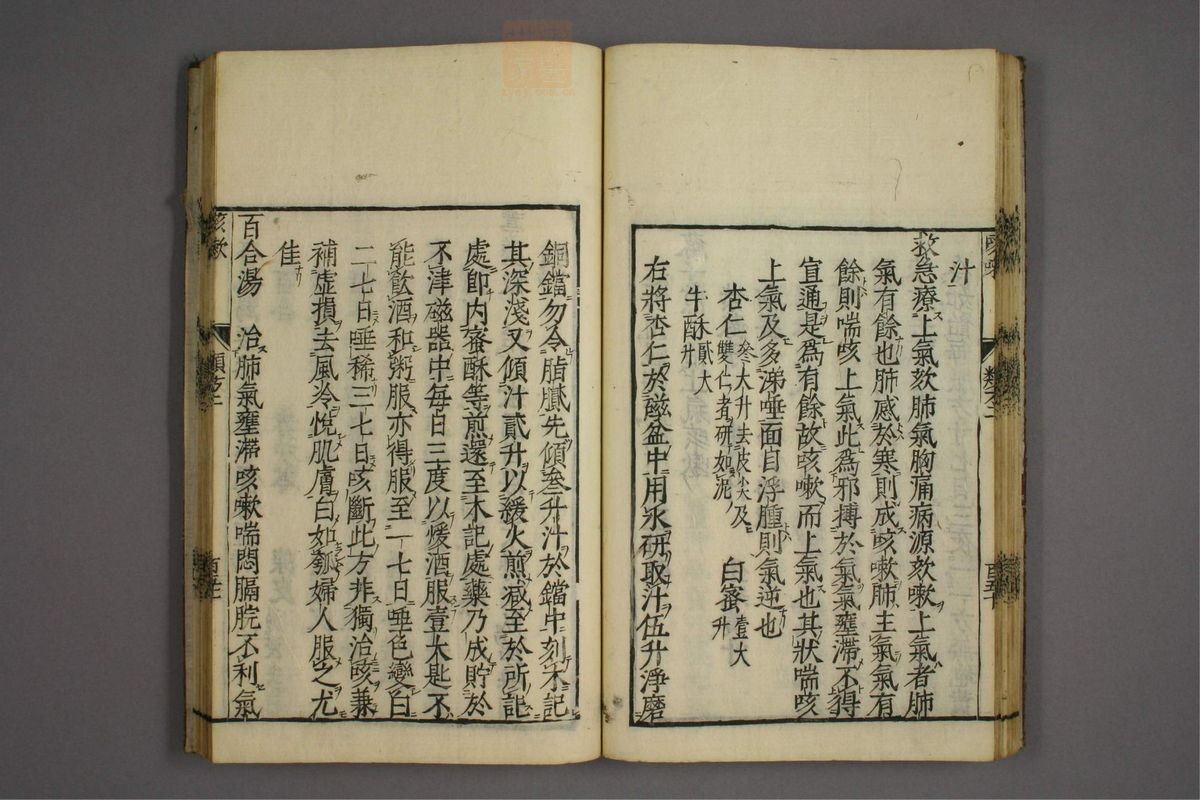 汁
救急療上氣欬肺氣胸痛病源欬嗽上氣者肺
氣有餘也肺感於寒則成咳嗽肺主氣氣有
餘則喘咳上氣此為邪搏於氣氣壅滯不得
宣通是為有餘故咳嗽而上氣也其狀喘咳
上氣及多涕唾面目浮腫則氣逆也
杏仁叄大升去皮尖及雙仁者研如泥 白蜜壹大升
牛酥貳大升
右將杏仁於磁盆中用水研取汁伍升淨磨
銅鐺勿令脂膩先傾叄升汁於鐺中刻木記
其深淺又傾汁貳升以緩火煎減至於所記
處卽内蜜酥等煎還至木記處藥乃成貯於
不津磁器中每日三度以煖酒服壹大匙不
能飲酒和粥服亦得服至一七日唾色變白
二七日唾稀三七日咳斷此方非獨治咳兼
補虛損去風冷悅肌膚白如瓠婦人服之尤
佳
百合湯 治肺氣壅滯咳嗽喘悶膈脘不利氣
咳嗽
類方二